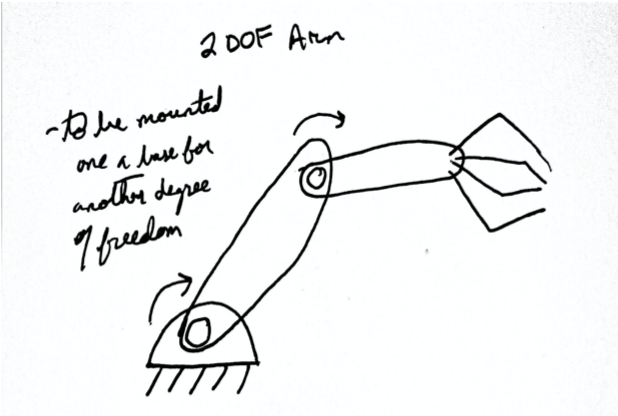 2 DOF Arm
- to be mounted
one a base for
another degree
of freedom